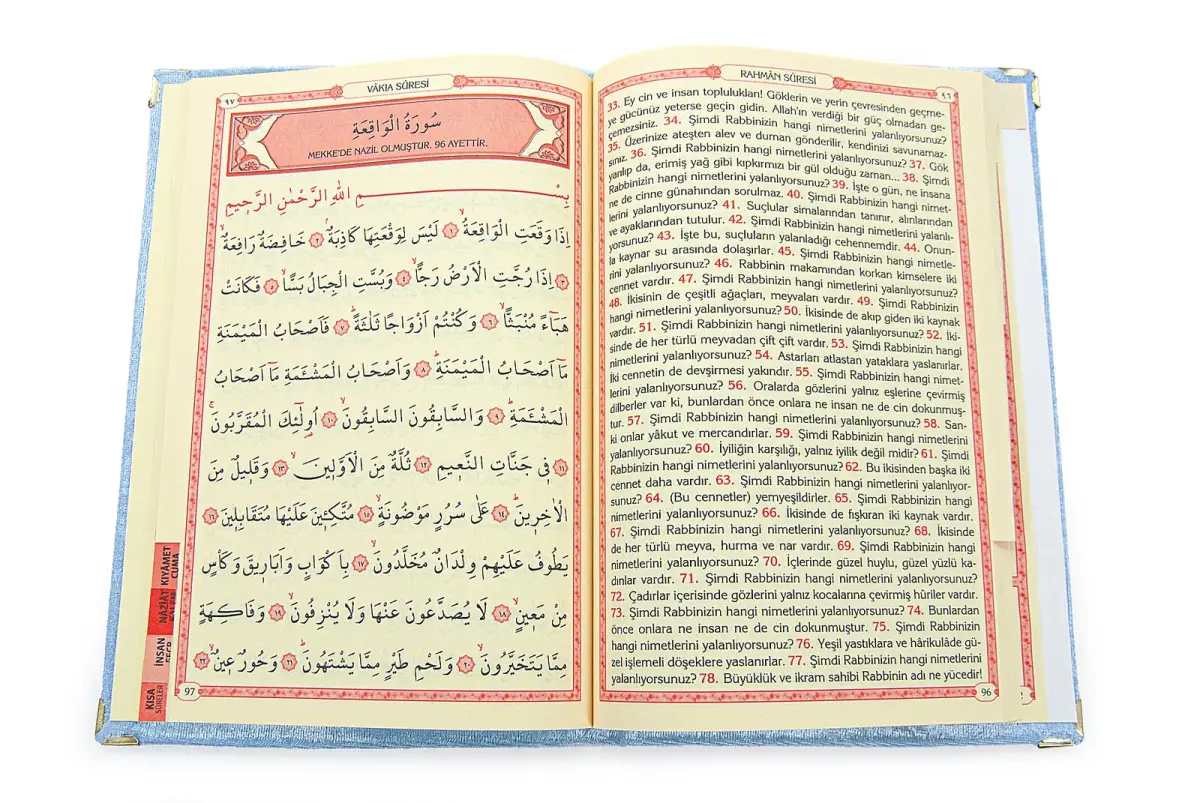 RAHMÂN SÛRESİ
٩٦
33. Ey cin ve insan toplulukları! Göklerin ve yerin çevresinden geçme-
ye gücünüz yeterse geçin gidin. Allah'ın verdiği bir güç olmadan ge-
çemezsiniz. 34. Şimdi Rabbinizin hangi nimetlerini yalanlıyorsunuz?
35. Üzerinize ateşten alev ve duman gönderilir, kendinizi savunamaz-
sınız. 36. Şimdi Rabbinizin hangi nimetlerini yalanlıyorsunuz? 37. Gök
yarılıp da, erimiş yağ gibi kıpkırmızı bir gül olduğu zaman... 38. Şimdi
Rabbinizin hangi nimetlerini yalanlıyorsunuz? 39. İşte o gün, ne insana
ne de cinne günahından sorulmaz. 40. Şimdi Rabbinizin hangi nimet-
lerini yalanlıyorsunuz? 41. Suçlular simalarından tanınır, alınlarından
ve ayaklarından tutulur. 42. Şimdi Rabbinizin hangi nimetlerini yalanlı-
yorsunuz? 43. İşte bu, suçluların yalanladığı cehennemdir. 44. Onun-
la kaynar su arasında dolaşırlar. 45. Şimdi Rabbinizin hangi nimetle-
rini yalanlıyorsunuz? 46. Rabbinin makamından korkan kimselere iki
cennet vardır. 47. Şimdi Rabbinizin hangi nimetlerini yalanlıyorsunuz?
48. İkisinin de çeşitli ağaçları, meyvaları vardır. 49. Şimdi Rabbinizin
hangi nimetlerini yalanlıyorsunuz? 50. İkisinde de akıp giden iki kaynak
vardır. 51. Şimdi Rabbinizin hangi nimetlerini yalanlıyorsunuz? 52. İki-
sinde de her türlü meyvadan çift çift vardır. 53. Şimdi Rabbinizin hangi
nimetlerini yalanlıyorsunuz? 54. Astarları atlastan yataklara yaslanırlar.
İki cennetin de devşirmesi yakındır. 55. Şimdi Rabbinizin hangi nimet-
lerini yalanlıyorsunuz? 56. Oralarda gözlerini yalnız eşlerine çevirmiş
dilberler var ki, bunlardan önce onlara ne insan ne de cin dokunmuş-
tur. 57. Şimdi Rabbinizin hangi nimetlerini yalanlıyorsunuz? 58. San-
ki onlar yâkut ve mercandırlar. 59. Şimdi Rabbinizin hangi nimetlerini
yalanlıyorsunuz? 60. İyiliğin karşılığı, yalnız iyilik değil midir? 61. Şimdi
Rabbinizin hangi nimetlerini yalanlıyorsunuz? 62. Bu ikisinden başka iki
cennet daha vardır. 63. Şimdi Rabbinizin hangi nimetlerini yalanlıyor-
sunuz? 64. (Bu cennetler) yemyeşildirler. 65. Şimdi Rabbinizin hangi
nimetlerini yalanlıyorsunuz? 66. İkisinde de fışkıran iki kaynak vardır.
67. Şimdi Rabbinizin hangi nimetlerini yalanlıyorsunuz? 68. İkisinde
de her türlü meyva, hurma ve nar vardır. 69. Şimdi Rabbinizin hangi
nimetlerini yalanlıyorsunuz? 70. İçlerinde güzel huylu, güzel yüzlü ka-
dınlar vardır. 71. Şimdi Rabbinizin hangi nimetlerini yalanlıyorsunuz?
72. Çadırlar içerisinde gözlerini yalnız kocalarına çevirmiş hûriler vardır.
73. Şimdi Rabbinizin hangi nimetlerini yalanlıyorsunuz? 74. Bunlardan
önce onlara ne insan ne de cin dokunmuştur. 75. Şimdi Rabbinizin
hangi nimetlerini yalanlıyorsunuz? 76. Yeşil yastıklara ve hârikulâde gü-
zel işlemeli döşeklere yaslanırlar. 77. Şimdi Rabbinizin hangi nimetlerini
yalanlıyorsunuz? 78. Büyüklük ve ikram sahibi Rabbinin adı ne yücedir!
96
VÂKIA SÛRESİ
٩٧
سُورَةُ الْوَاقِعَةِ
MEKKE'DE NAZİL OLMUŞTUR. 96 AYETTİR.
بِسْمِ اللّٰهِ الرَّحْمٰنِ الرَّح۪يمِ
اِذَا وَقَعَتِ الْوَاقِعَةُۙ ١ لَيْسَ لِوَقْعَتِهَا كَاذِبَةٌۢ ٢ خَافِضَةٌ رَافِعَةٌۙ
٣ اِذَا رُجَّتِ الْاَرْضُ رَجًّاۙ ٤ وَبُسَّتِ الْجِبَالُ بَسًّاۙ ٥ فَكَانَتْ
هَبَٓاءً مُنْبَثًّاۙ ٦ وَكُنْتُمْ اَزْوَاجًا ثَلٰثَةًۜ ٧ فَاَصْحَابُ الْمَيْمَنَةِ
مَٓا اَصْحَابُ الْمَيْمَنَةِۜ ٨ وَاَصْحَابُ الْمَشْـَٔمَةِ مَٓا اَصْحَابُ
الْمَشْـَٔمَةِۜ ٩ وَالسَّابِقُونَ السَّابِقُونَۙ ١٠ اُو۬لٰٓئِكَ الْمُقَرَّبُونَۚ
١١ ف۪ي جَنَّاتِ النَّع۪يمِ ١٢ ثُلَّةٌ مِنَ الْاَوَّل۪ينَۙ ١٣ وَقَل۪يلٌ مِنَ
الْاٰخِر۪ينَۜ ١٤ عَلٰى سُرُرٍ مَوْضُونَةٍۙ ١٥ مُتَّكِـ۪ٔينَ عَلَيْهَا مُتَقَابِل۪ينَ ١٦
يَطُوفُ عَلَيْهِمْ وِلْدَانٌ مُخَلَّدُونَۙ ١٧ بِاَكْوَابٍ وَاَبَار۪يقَ وَكَأْسٍ
مِنْ مَع۪ينٍۙ ١٨ لَا يُصَدَّعُونَ عَنْهَا وَلَا يُنْزِفُونَۙ ١٩ وَفَاكِهَةٍ
مِمَّا يَتَخَيَّرُونَۙ ٢٠ وَلَحْمِ طَيْرٍ مِمَّا يَشْتَهُونَۜ ٢١ وَحُورٌ ع۪ينٌۙ ٢٢
97
KIYÂMET
CUMA
NÂZİÂT
İNSAN
FECR
KISA
SÛRELER